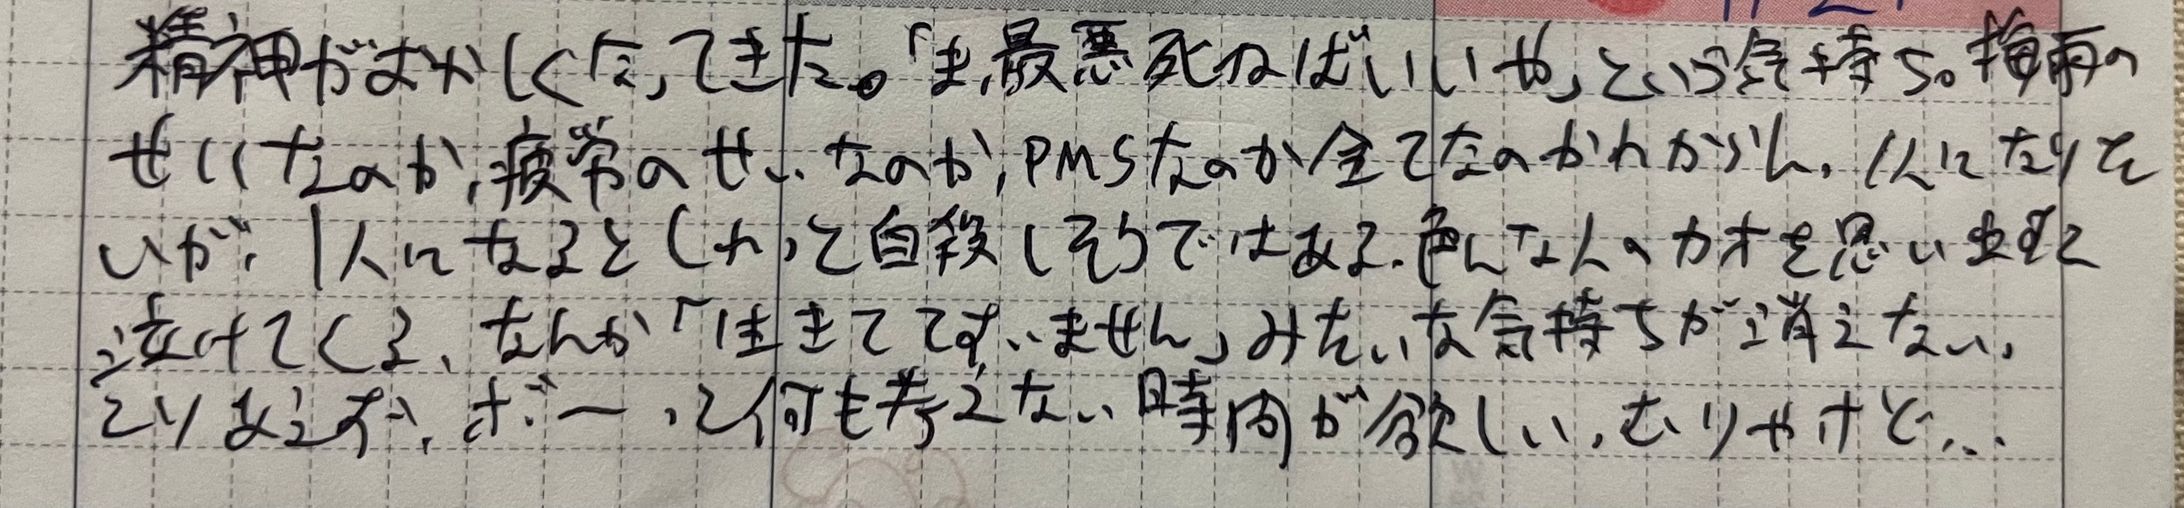 精神がおかしくなってきた。「ま、最悪死ねばいいや」という気持ち。梅雨の
せいなのか、疲労のせいなのか、PMSなのか全てなのかわからん。1人になりた
いが、1人になるとしれっと自殺しそうではある。色んな人のカオを思い出すと
泣けてくる、なんか「生きててすいません」みたいな気持ちが消えない。
とりあえず、ボーっと何も考えない時間が欲しい。むりやけど...